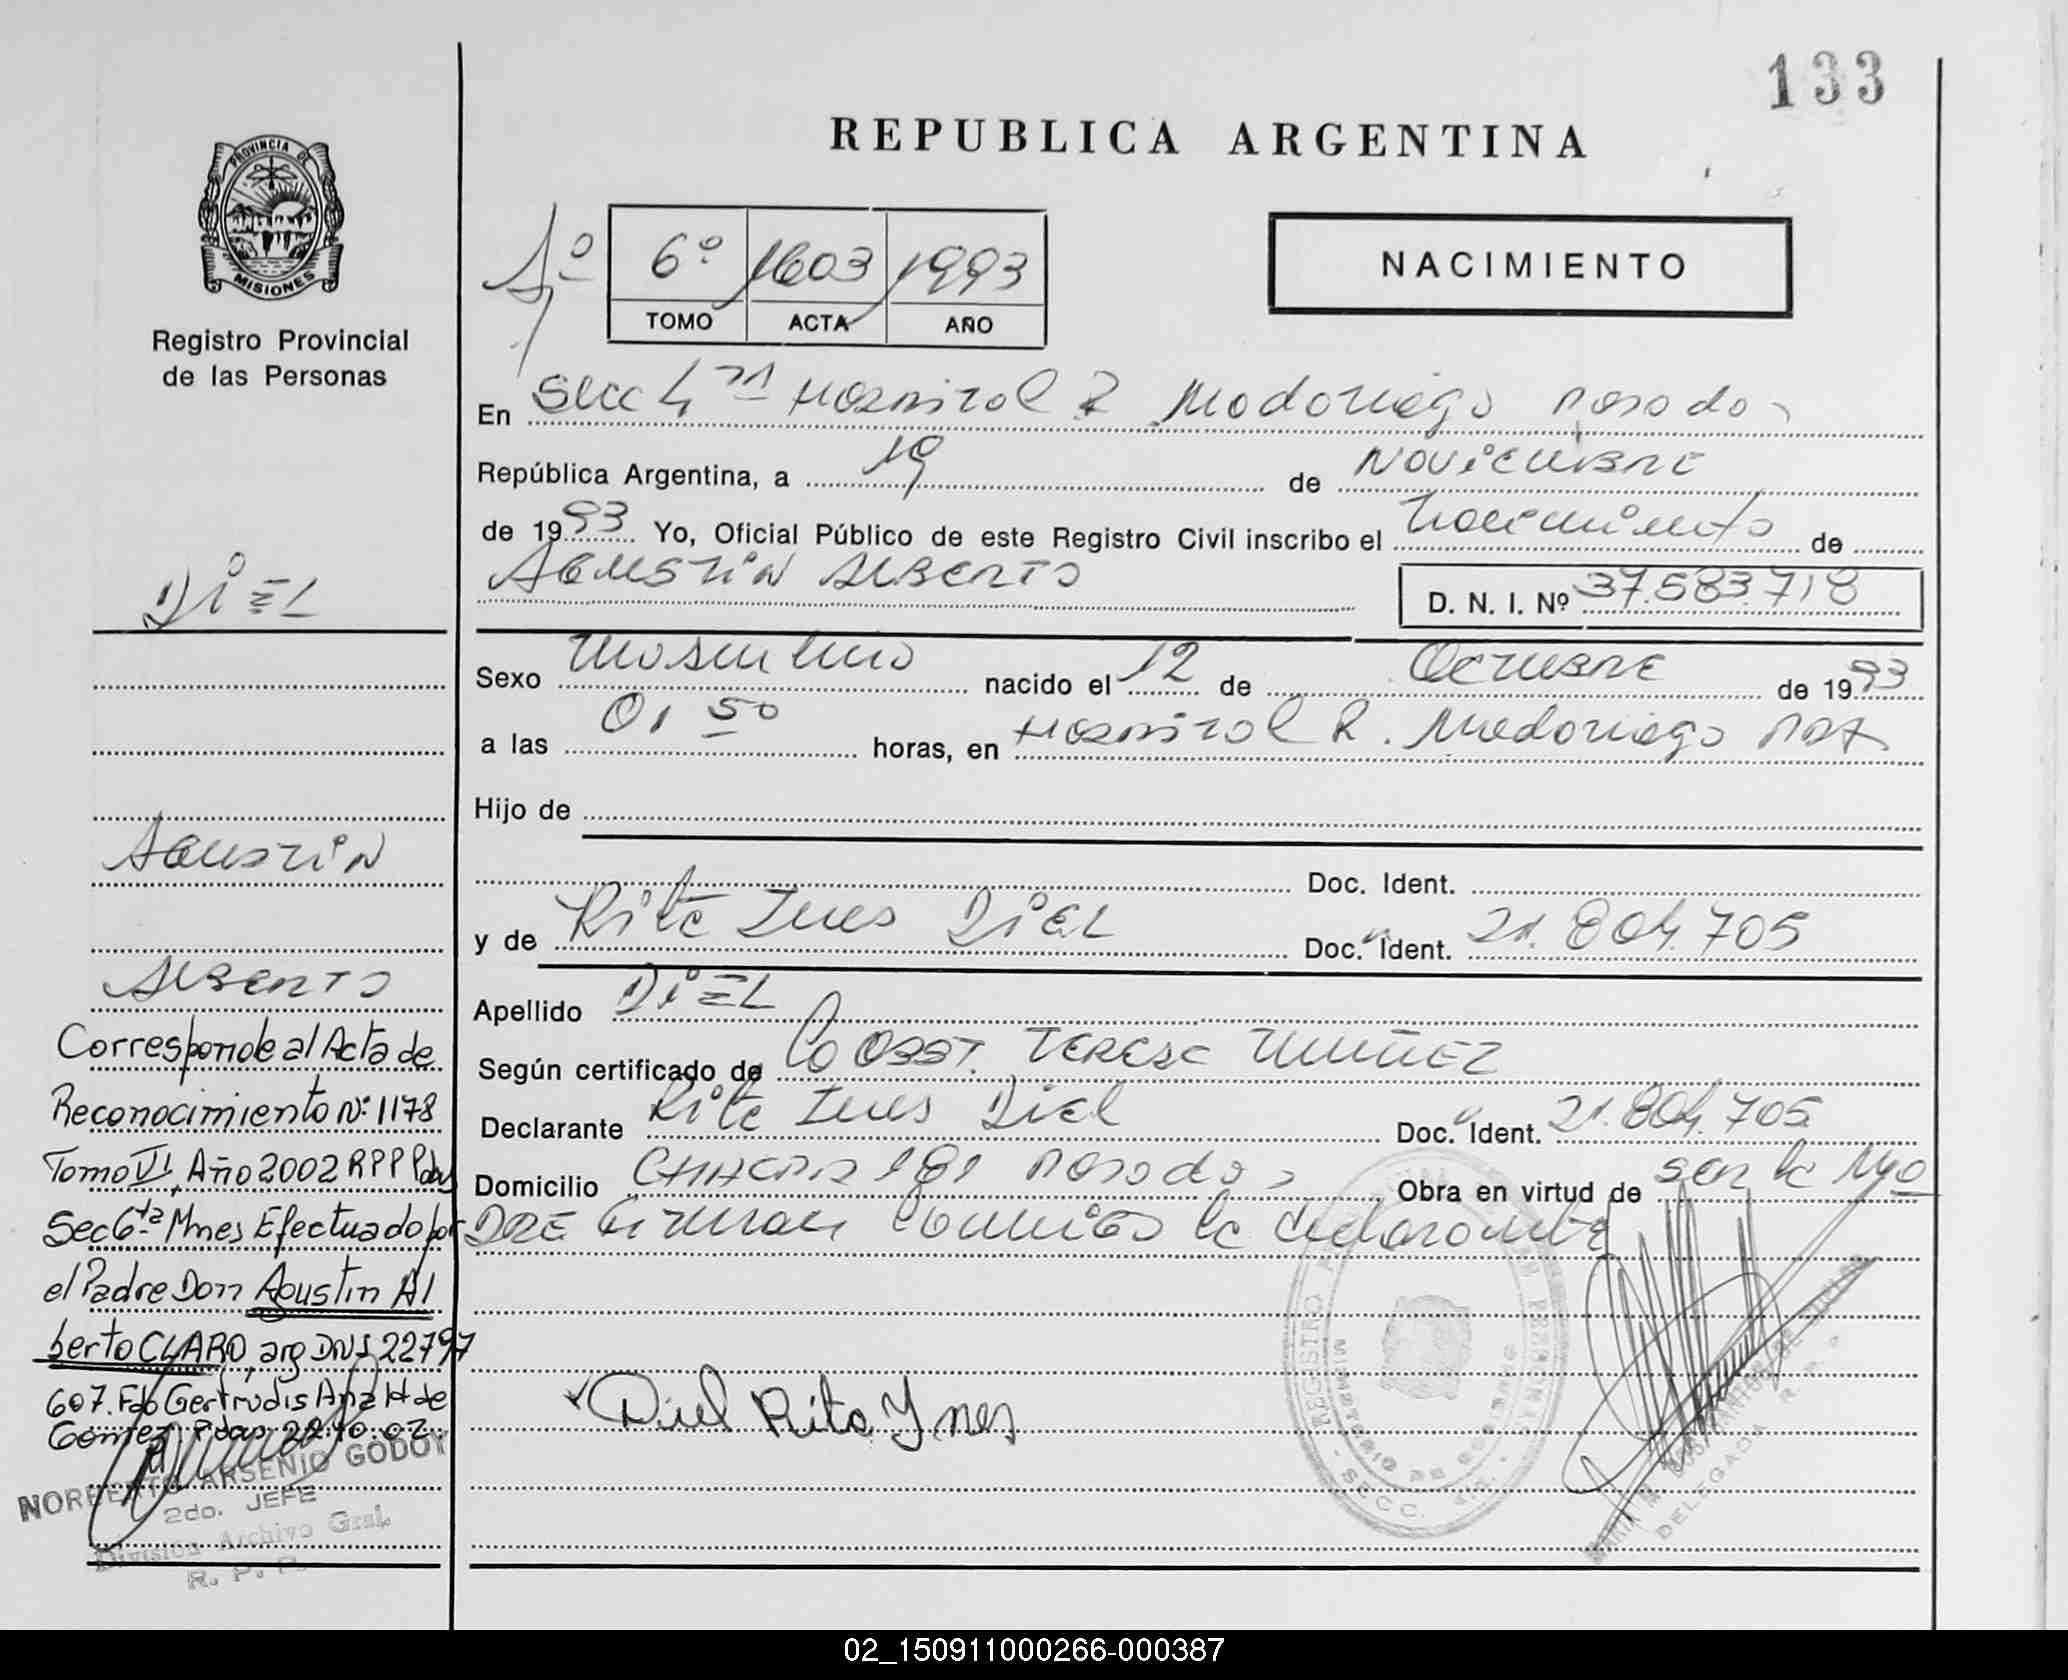 133
REPUBLICA ARGENTINA
PROVINCIA DE
MISIONES
Registro Provincial
de las Personas
6º 1603 1993
TOMO ACTA AÑO
NACIMIENTO
En Secc 4ta Hospital R Madariaga Posadas
República Argentina, a 19 de Noviembre
de 1993 Yo, Oficial Público de este Registro Civil inscribo el nacimiento de
AGUSTIN ALBERTO D. N. I. Nº 37.583.718
Sexo masculino nacido el 12 de Octubre de 1993
a las 01 50 horas, en Hospital R. Madariaga Pdas
Hijo de
Doc. Ident.
y de Rita Ines DIEL Doc. Ident. 21.804.705
Apellido DIEL
Según certificado de Obst. Teresa Nuñez
Declarante Rita Ines Diel Doc. Ident. 21.804.705
Domicilio CHACRA 181 Posadas Obra en virtud de ser la
la declarante
Diel Rita Ynes
DIEL
AGUSTIN
ALBERTO
Corresponde al Acta de
Reconocimiento Nº 1178
Tomo VI, Año 2002 RPP Pdas
Sec 6ta Mnes Efectuado por
el Padre Don Agustin Al
berto CLARO, arg DNI 22797
607. Fdo Gertrudis Ana H de
Gomez Pdas 22.10.02.
NORBERTO ARSENIO GODOY
2do. JEFE
División Archivo Gral.
R. P. P.
REGISTRO
MINISTERIO DE GOBIERNO
SECC.
DELEGADA R.P.P.
02_150911000266-000387